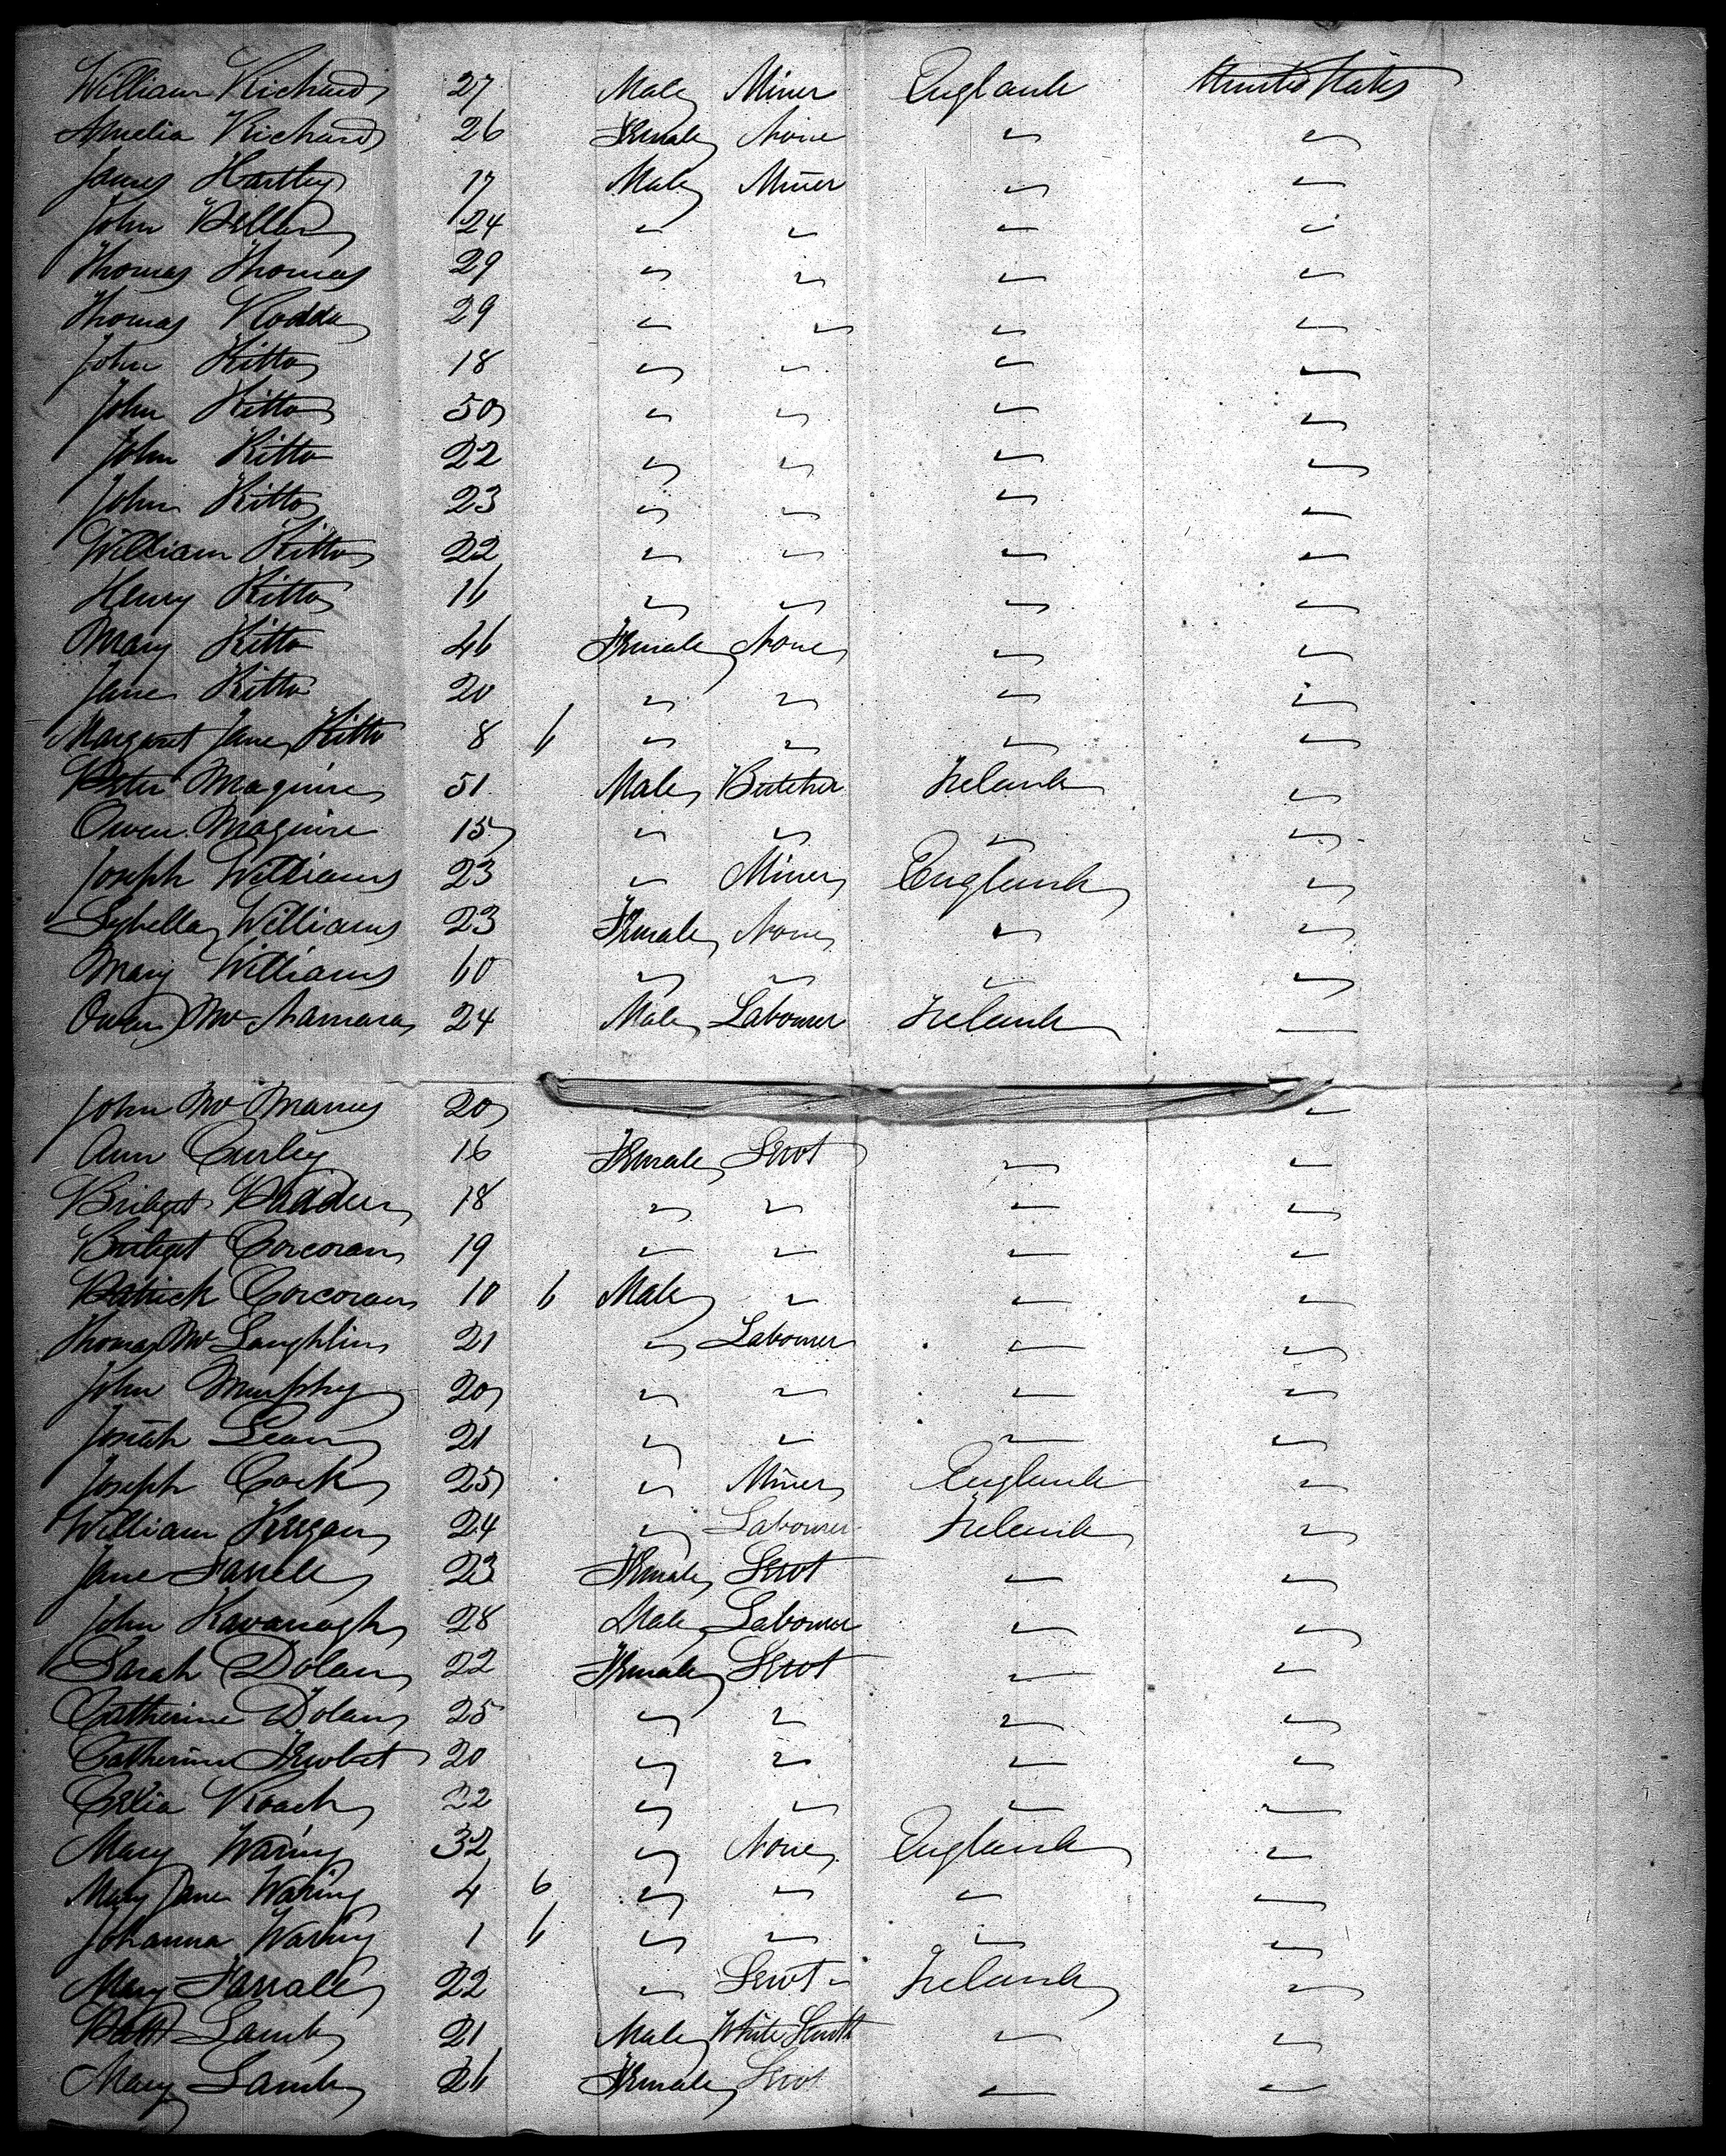 William Richards 27 Male Miner England United States
Amelia Richards 26 Female None " "
James Hartley 17 Male Miner " "
John 24 " " " "
Thomas Thomas 29 " " " "
Thomas Rodda 29 " " " "
John Kitto 18 " " " "
John Kitto 50 " " " "
John Kitto 22 " " " "
John Kitto 23 " " " "
William Kitto 22 " " " "
Henry Kitto 16 " " " "
Mary Kitto 46 Female None " "
Jane Kitto 20 " " " "
Margaret Jane Kitto 8 6 " " " "
Peter Maguire 51 Male Butcher Ireland "
Owen Maguire 15 " " " "
Joseph Williams 23 " Miner England "
Sybella Williams 23 Female None " "
Mary Williams 60 " " " "
Owen McNamara 24 Male Labourer Ireland "
John McManus 20 "
Ann Curley 16 Female Servt " "
Bridget Padden 18 " " " "
Bridget Corcoran 19 " " " "
Patrick Corcoran 10 6 Male " " "
Thomas McLaughlin 21 " Labourer " "
John Murphy 20 " " " "
Josiah Lean 21 " " " "
Joseph Cock 25 " Miner England "
William Keegan 24 " Labourer Ireland "
Jane Farrell 23 Female Servt " "
John Kavanagh 28 Male Labourer " "
Sarah Dolan 22 Female Servt " "
Catherine Dolan 25 " " " "
Catherine 20 " " " "
Celia Roach 22 " " " "
Mary Waring 32 " None England "
Mary Jane Waring 4 6 " " " "
Johanna Waring 1 6 " " " "
Mary Farrall 22 " Servt Ireland "
Patt Lamb 21 Male White Smith " "
Mary Lamb 26 Female Servt " "